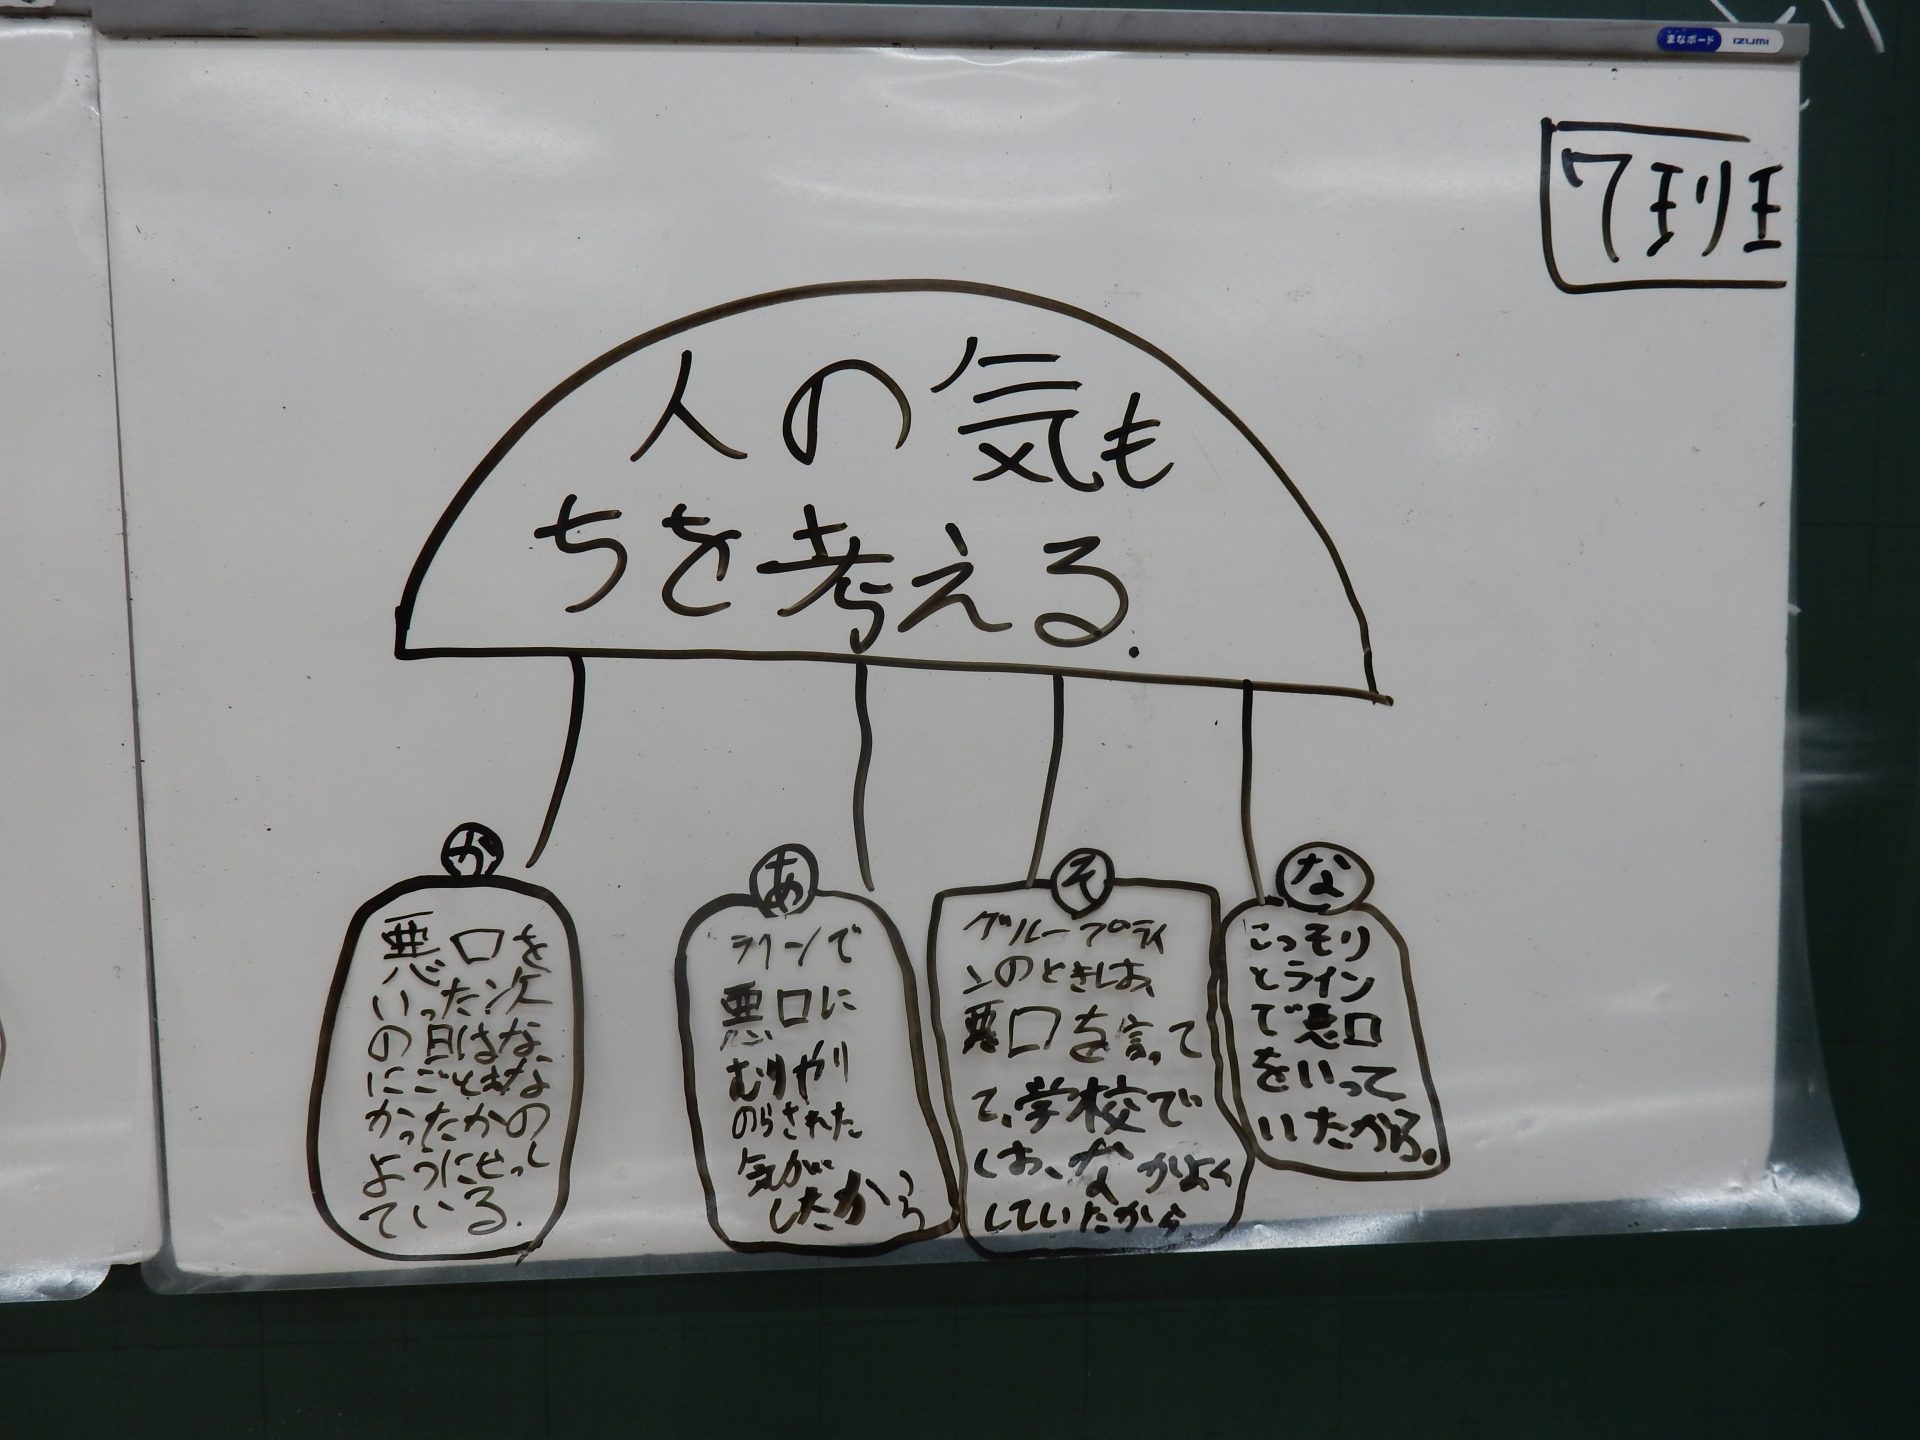 まなボード IZUMI
7班
人の気も
ちを考える.
か
悪口を
いった次
の日はな
にごともな
かったかの
ようにせっし
ている.
あ
ラインで
悪口に
むりやり
のらされた
気が
したから
そ
グループライ
ンのときは、
悪口を言って
て、学校で
は、なかよく
していたから
な
こっそり
とライン
で悪口
をいって
いたから.